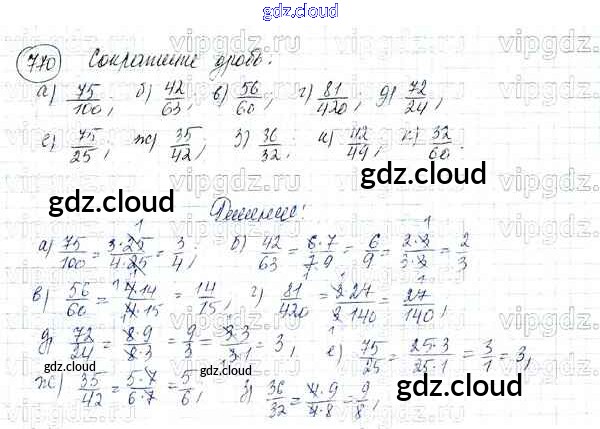 gdz.cloud
770 Сократите дробь:
gdz.cloud
а) 75/100; б) 42/63; в) 56/60; г) 81/420; д) 72/24;
е) 75/25; ж) 35/42; з) 36/32; и) 42/49; к) 32/60.
gdz.cloud gdz.cloud
Решение:
а) 75/100 = 3·25/4·25 = 3/4; б) 42/63 = 6·7/7·9 = 6/9 = 2·3/3·3 = 2/3
в) 56/60 = 4·14/4·15 = 14/15; г) 81/420 = 3·27/3·140 = 27/140;
gdz.cloud gdz.cloud
д) 72/24 = 8·9/8·3 = 9/3 = 3·3/3·1 = 3; е) 75/25 = 25·3/25·1 = 3/1 = 3;
gdz.cloud
ж) 35/42 = 5·7/6·7 = 5/6; з) 36/32 = 4·9/4·8 = 9/8;
gdz.cloud